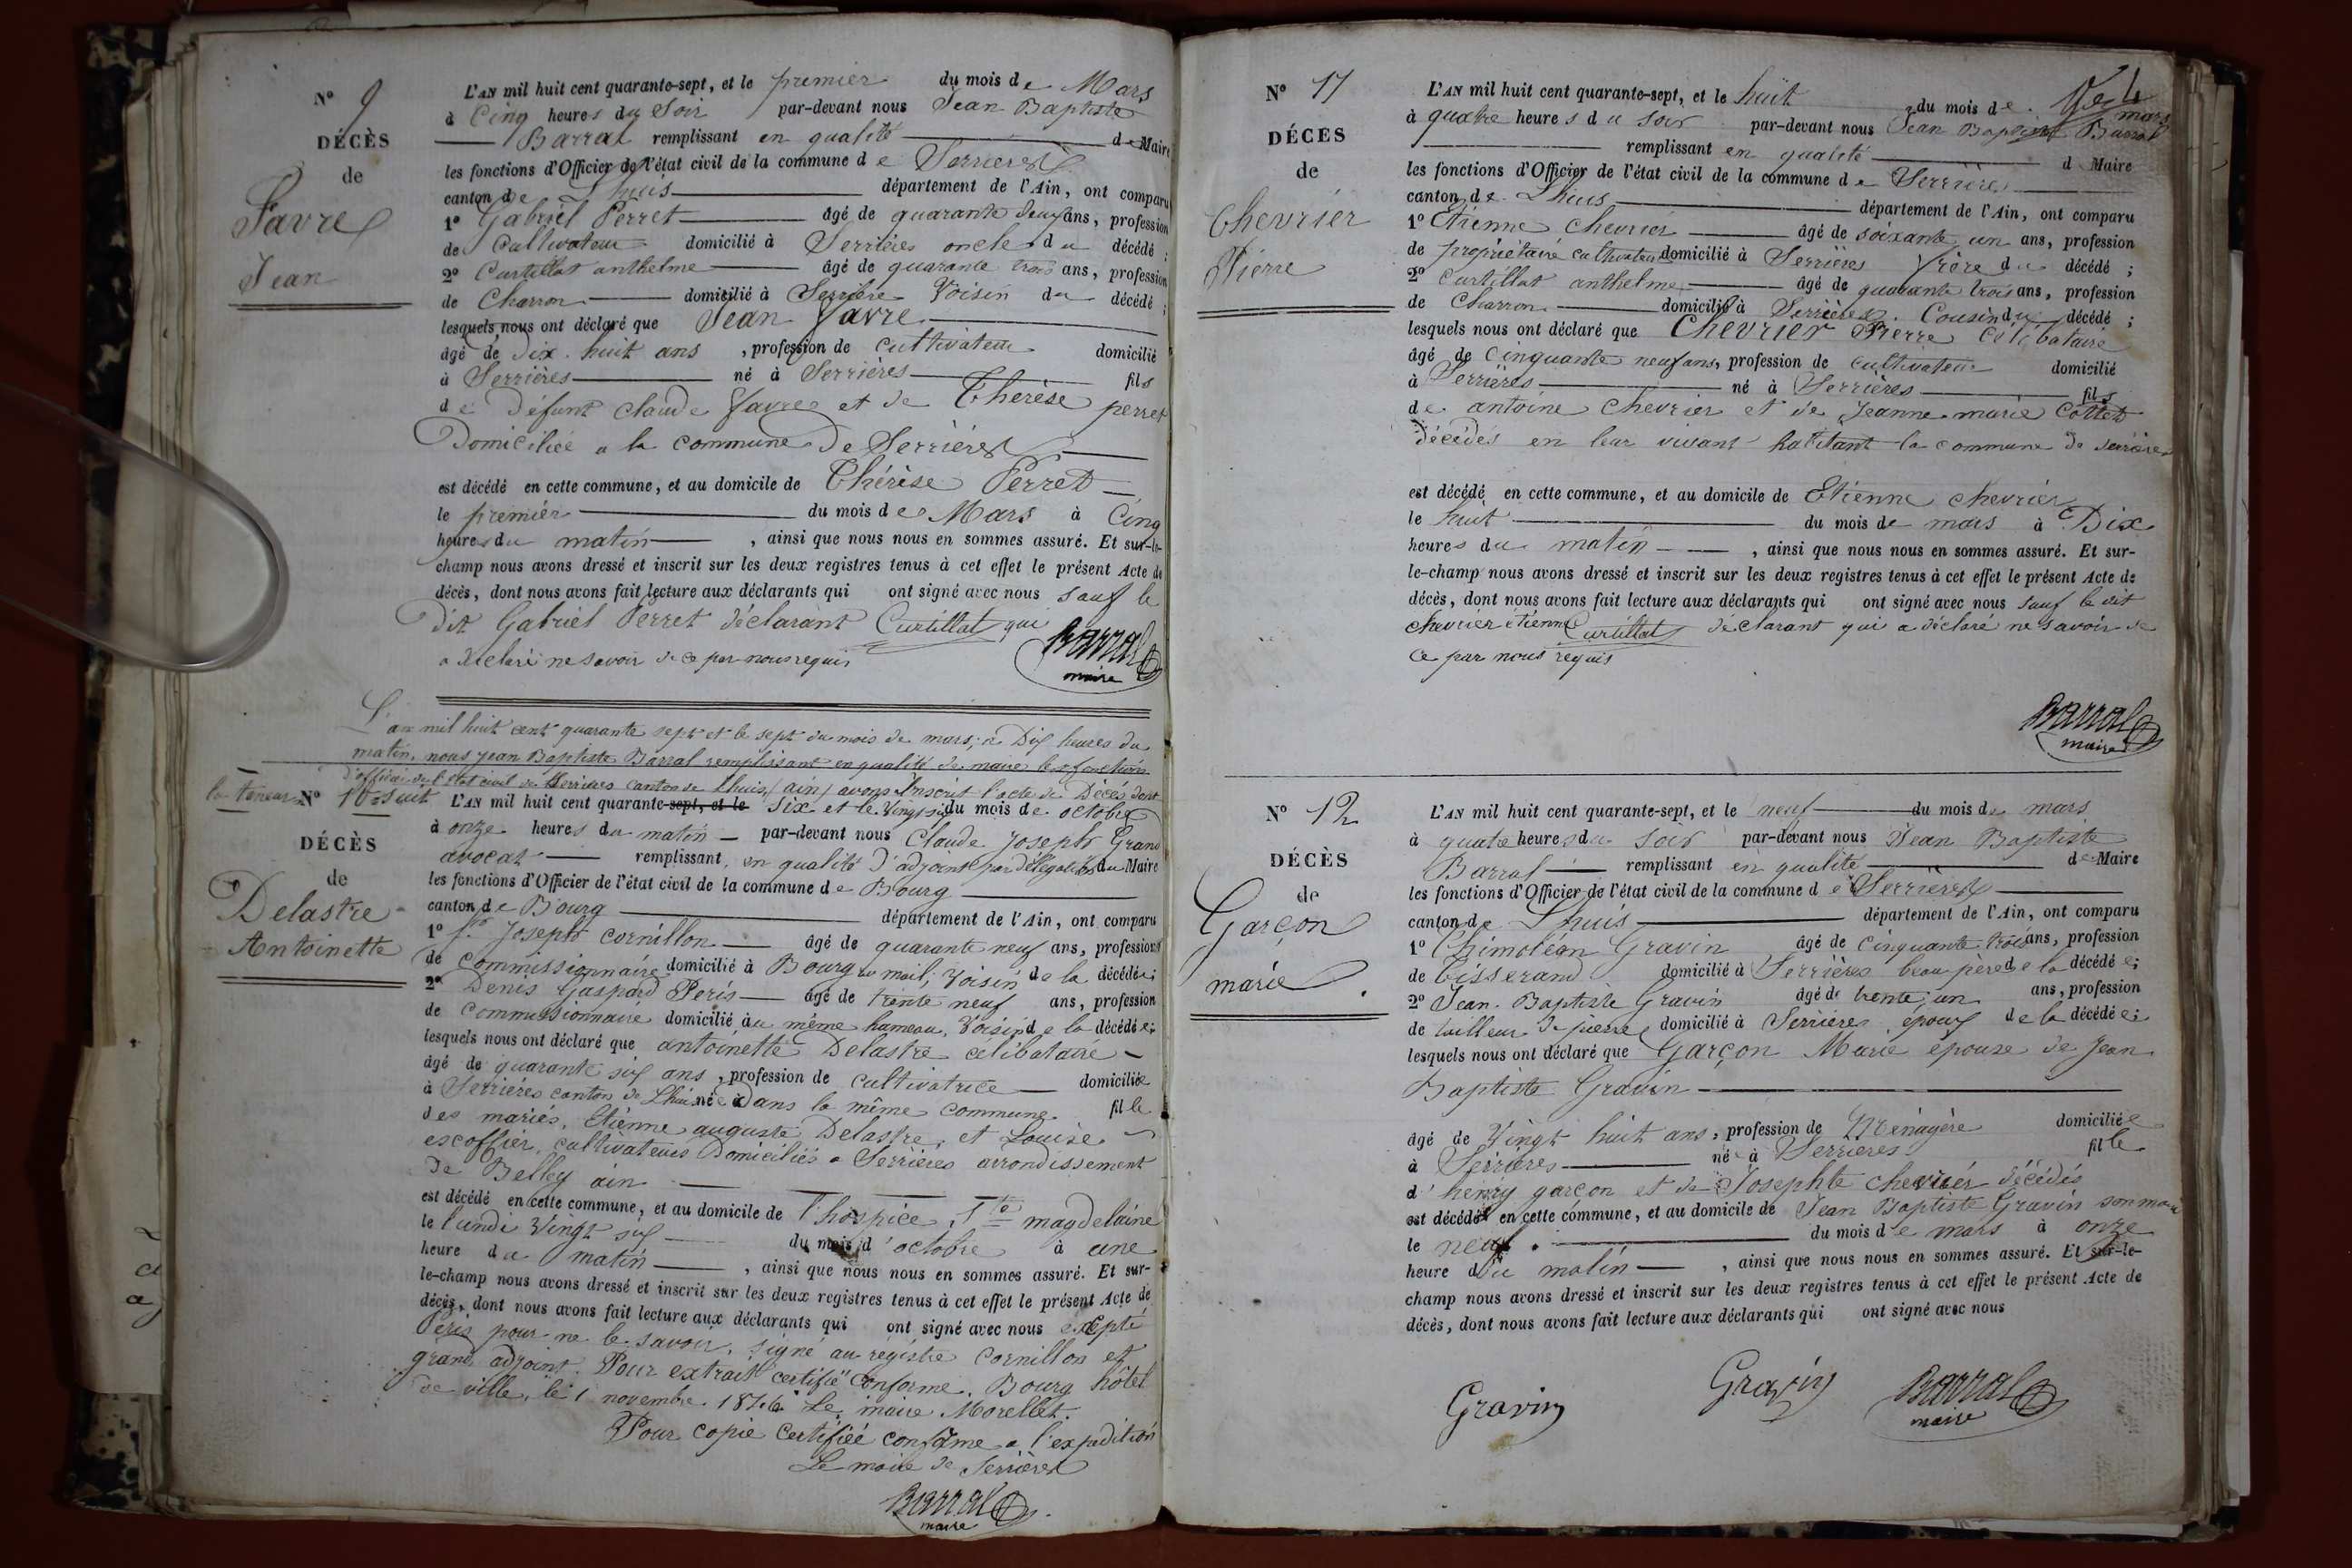 N° 9
DÉCÈS
de
Favre
Jean
L'AN mil huit cent quarante-sept, et le premier du mois de Mars
à Cinq heures du Soir par-devant nous Jean Baptiste
Barral remplissant en qualité de Maire
les fonctions d'Officier de l'état civil de la commune de Serrières
canton de Lhuis département de l'Ain, ont comparu
1° Gabriel Perret âgé de quarante deux ans, profession
de Cultivateur domicilié à Serrières oncle du décédé ;
2° Curtillat anthelme âgé de quarante trois ans, profession
de Charron domicilié à Serrière Voisin du décédé ;
lesquels nous ont déclaré que Jean Favre
âgé de Dix huit ans , profession de Cultivateur domicilié
à Serrières né à Serrières fils
de Défunt claude favre et de Thérèse perret
Domiciliée a la commune de Serrières
est décédé en cette commune, et au domicile de Thérèse Perret
le premier du mois de Mars à Cinq
heures du matin , ainsi que nous nous en sommes assuré. Et sur-le-
champ nous avons dressé et inscrit sur les deux registres tenus à cet effet le présent Acte de
décès, dont nous avons fait lecture aux déclarants qui ont signé avec nous sauf le
Dit Gabriel Perret déclarant Curtillat qui
a déclaré ne savoir de ce par nous requis
Barral
maire
L'an mil huit cent quarante sept et le sept du mois de mars, a Dix heures du
matin, nous jean Baptiste Barral remplissant en qualité de maire les fonctions
d'officier de l'état civil de Serrières canton de Lhuis (ain) avons inscrit l'acte de Décès dont
la teneur suit
N° 10
DÉCÈS
de
Delastre
Antoinette
L'AN mil huit cent quarante-sept, et le six et le Vingt six du mois de octobre
à onze heures du matin par-devant nous Claude Joseph Grand
avocat remplissant en qualité d'adjoint par délégation du Maire
les fonctions d'Officier de l'état civil de la commune de Bourg
canton de Bourg département de l'Ain, ont comparu
1° Joseph Cornillon âgé de quarante neuf ans, profession
de Commissionnaire domicilié à Bourg au mail, Voisin de la décédée ;
2° Denis Gaspard Peris âgé de trente neuf ans, profession
de Commissionnaire domicilié au même hameau, Voisin de la décédée ;
lesquels nous ont déclaré que antoinette Delastre célibataire
âgé de quarante six ans , profession de cultivatrice domiciliée
à Serrières canton de Lhuis née Dans la même commune fille
des mariés, Etienne auguste Delastre, et Louise
escoffier, cultivateurs Domiciliés a Serrières arrondissement
de Belley ain
est décédé en cette commune, et au domicile de l'hospice Ste magdelaine
le lundi Vingt six du mois d'octobre à une
heure du matin , ainsi que nous nous en sommes assuré. Et sur-
le-champ nous avons dressé et inscrit sur les deux registres tenus à cet effet le présent Acte de
décès, dont nous avons fait lecture aux déclarants qui ont signé avec nous excepté
Peris pour ne le savoir, signé au régistre Cornillon et
grand adjoint. Pour extrait certifié Conforme. Bourg hôtel
de ville, le 1 novembre 1846 Le maire Morellet.
Pour copie Certifiée conforme a l'expédition
Le maire de Serrières
Barral
maire
N° 11
DÉCÈS
de
Chevrier
Pierre
L'AN mil huit cent quarante-sept, et le huit du mois de mars
à quatre heures du soir par-devant nous Jean Baptiste Barral
remplissant en qualité d Maire
les fonctions d'Officier de l'état civil de la commune de Serrières
canton de Lhuis département de l'Ain, ont comparu
1° Etienne Chevrier âgé de soixante un ans, profession
de propriétaire cultivateur domicilié à Serrières frère du décédé ;
2° Curtillat anthelme âgé de quarante trois ans, profession
de Charron domicilié à Serrières. Cousin du décédé ;
lesquels nous ont déclaré que Chevrier Pierre Célibataire
âgé de Cinquante neuf ans, profession de cultivateur domicilié
à Serrières né à Serrières fils
de antoine Chevrier et de Jeanne marie Cottet
décédés en leur vivant habitant la commune de Serrières
est décédé en cette commune, et au domicile de Etienne chevrier
le huit du mois de mars à Dix
heures du matin , ainsi que nous nous en sommes assuré. Et sur-
le-champ nous avons dressé et inscrit sur les deux registres tenus à cet effet le présent Acte de
décès, dont nous avons fait lecture aux déclarants qui ont signé avec nous sauf le dit
chevrier étienne Curtillat déclarant qui a déclaré ne savoir de
ce par nous requis
Barral
maire
N° 12
DÉCÈS
de
Garçon
marie
L'AN mil huit cent quarante-sept, et le neuf du mois de mars
à quatre heures du soir par-devant nous Jean Baptiste
Barral remplissant en qualité de Maire
les fonctions d'Officier de l'état civil de la commune de Serrières
canton de Lhuis département de l'Ain, ont comparu
1° Thimoléan Gravin âgé de Cinquante trois ans, profession
de tisserand domicilié à Serrières beau père de la décédée ;
2° Jean Baptiste Gravin âgé de trente un ans, profession
de tailleur de pierre domicilié à Serrières époux de la décédée ;
lesquels nous ont déclaré que Garçon Marie épouse de Jean
Baptiste Gravin
âgé de Vingt huit ans, profession de Ménagère domiciliée
à Serrières née à Serrières fille
d'henry garçon et de Josephte chevrier décédés
est décédée en cette commune, et au domicile de Jean Baptiste Gravin son mari
le neuf du mois de mars à onze
heure du matin , ainsi que nous nous en sommes assuré. Et sur-le-
champ nous avons dressé et inscrit sur les deux registres tenus à cet effet le présent Acte de
décès, dont nous avons fait lecture aux déclarants qui ont signé avec nous
Gravin Gravin Barral
maire